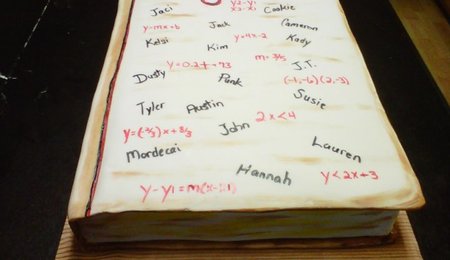 y2-y1
Jaci x2-x1 Cookie
y-mx=b Jack Cameron
Kelsi y=4x-2 Kady
Kim
m=3/5
y=0.2t+73 J.T.
Dusty Punk (-1,-6)(2,-3)
Susie
Tyler Austin
2x<4
y=(-2/3)x+8/3 John
Mordecai Lauren
Hannah y<2x+3
y-y1=m(x-x1)